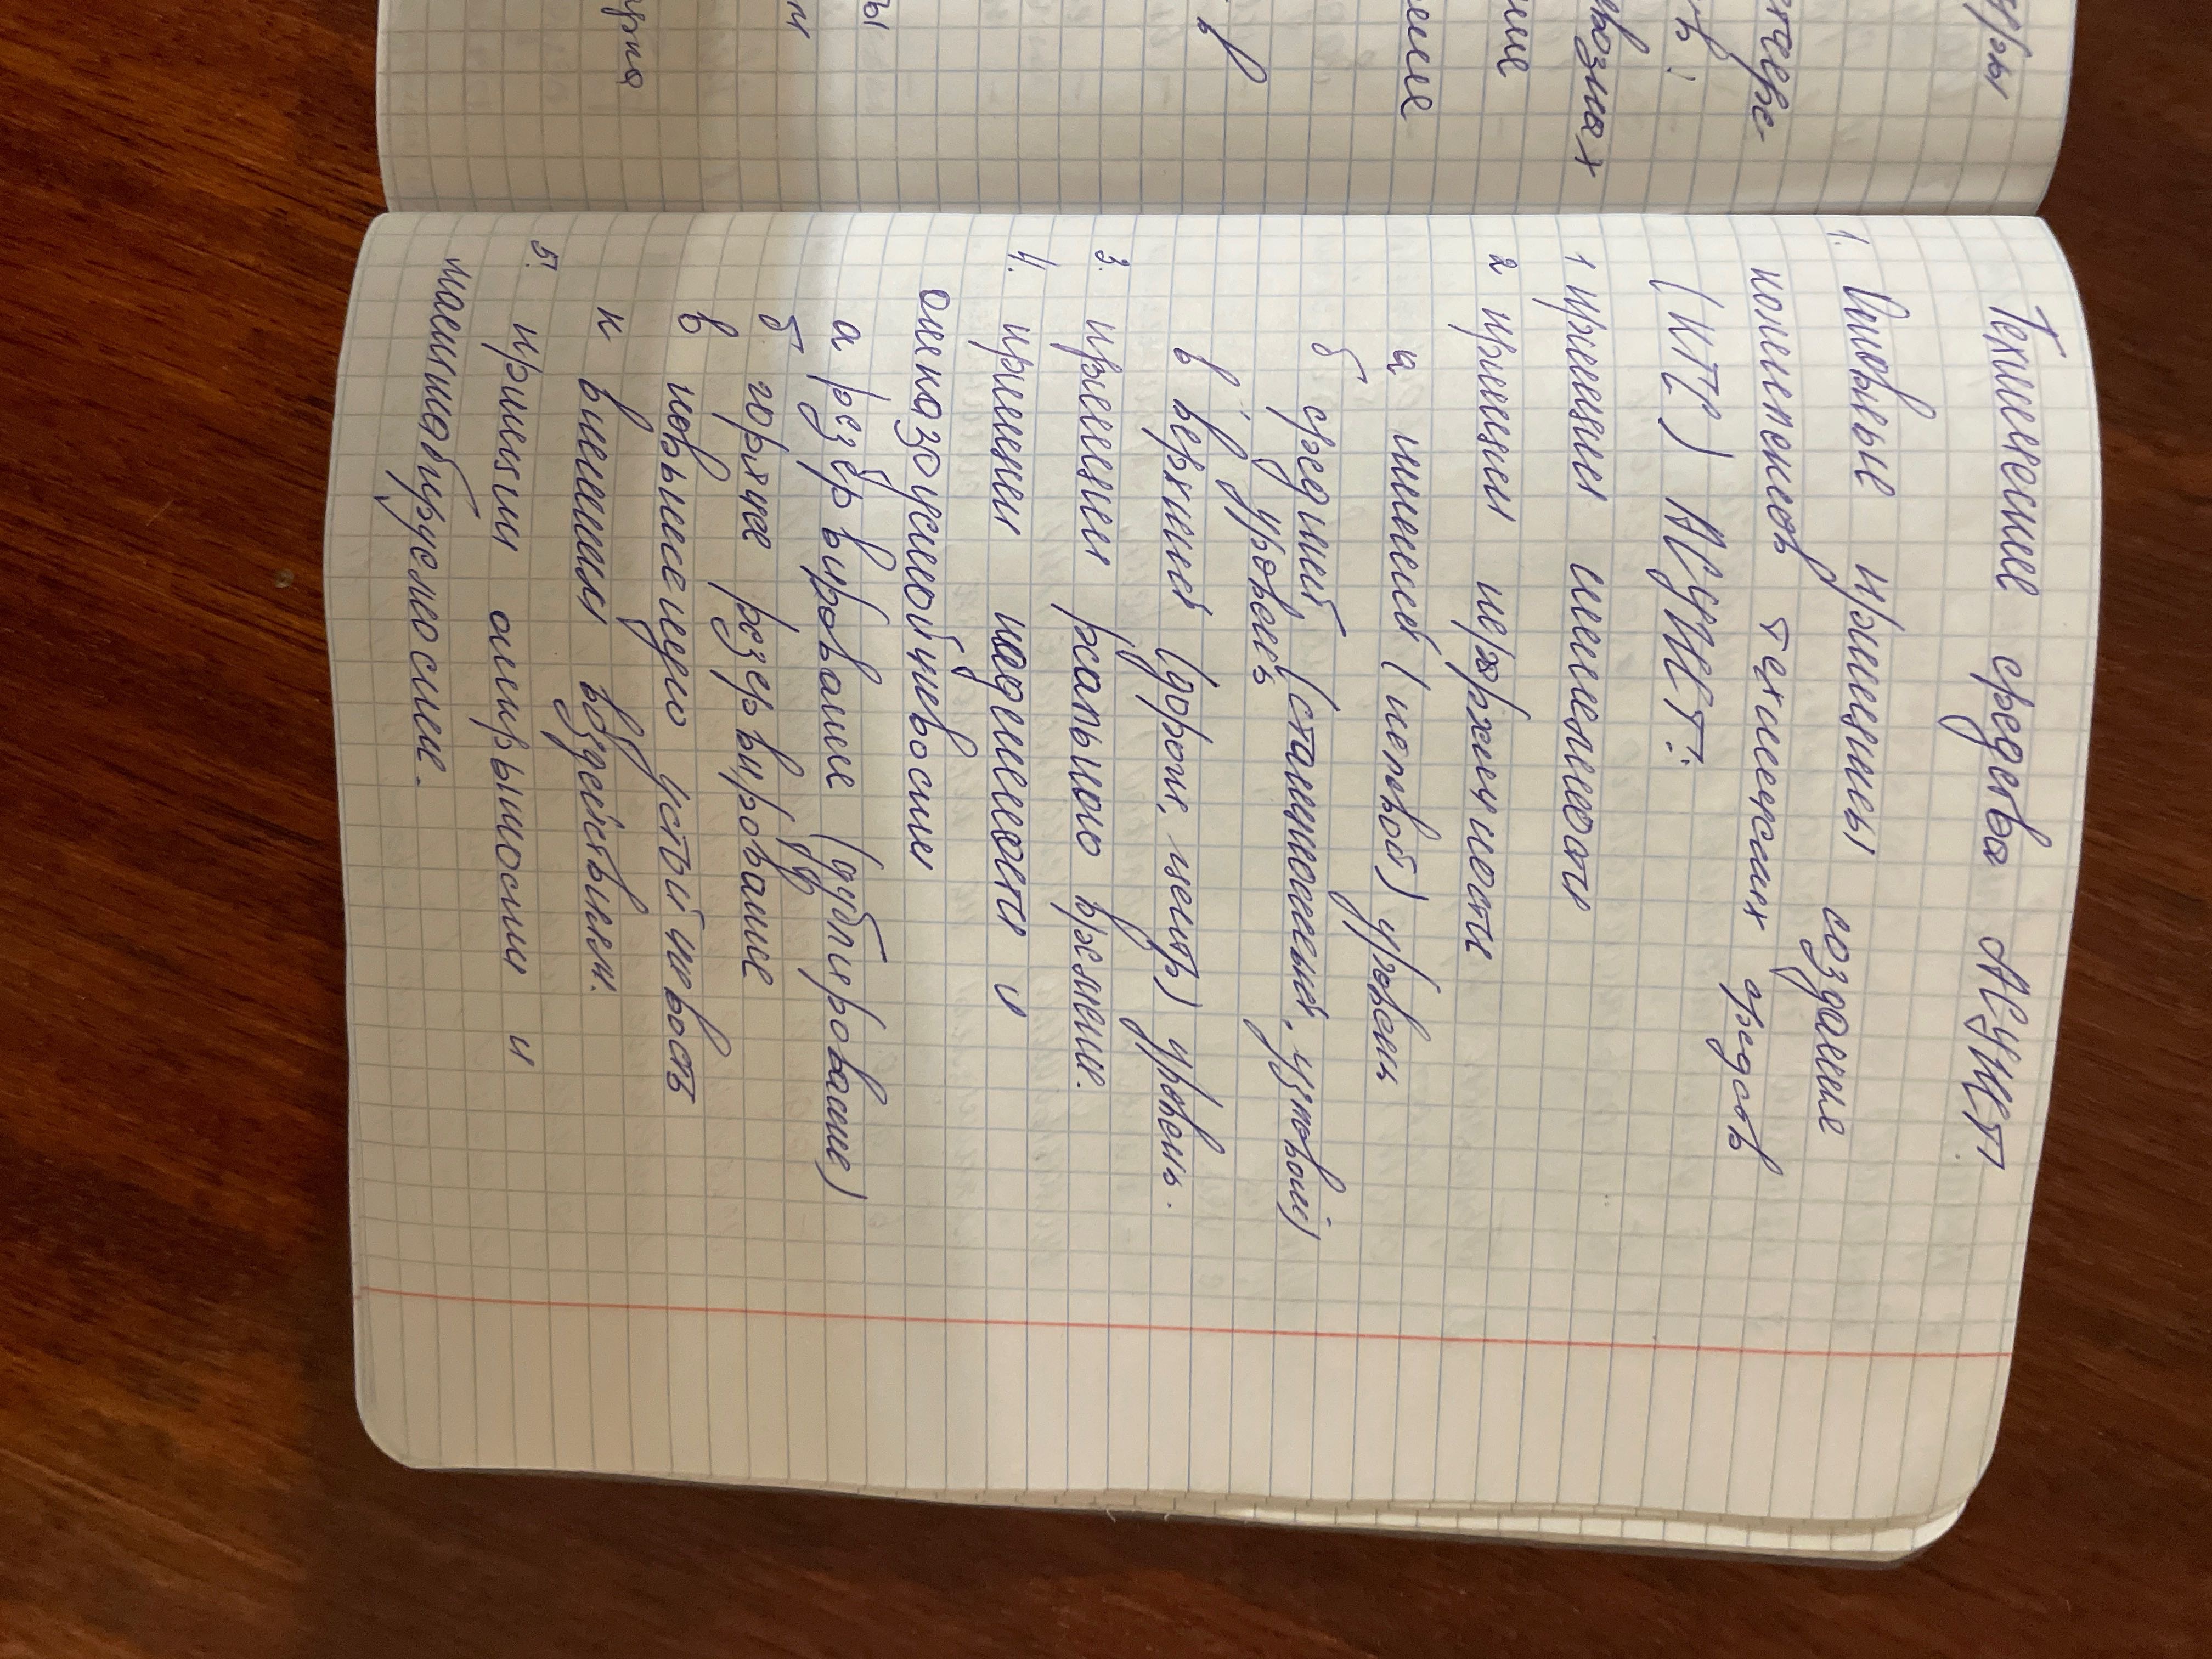 Технические средства АСУЖТ
1. Основные принципы создания
комплексов технических средств
(КТС) АСУЖТ:
1 принцип системности
2 принцип иерархичности
а нижний (первой) уровень
б средний (станционный, узловой)
уровень
в верхний (дороги, центр) уровень.
3. принцип реального времени.
4. принцип надежности и
отказоустойчивости
а резервирование (дублирование)
б горячее резервирование
в повышенную устойчивость
к внешним воздействиям.
5. принцип открытости и
масштабируемости.
ерте-
возная
в